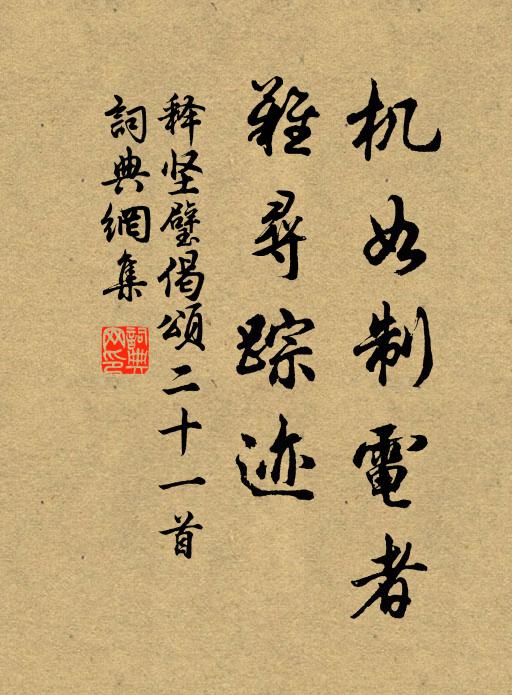 机如制電者
難尋踪迹
释坚璧偈頌二十一首
詞典網集
詞典網印